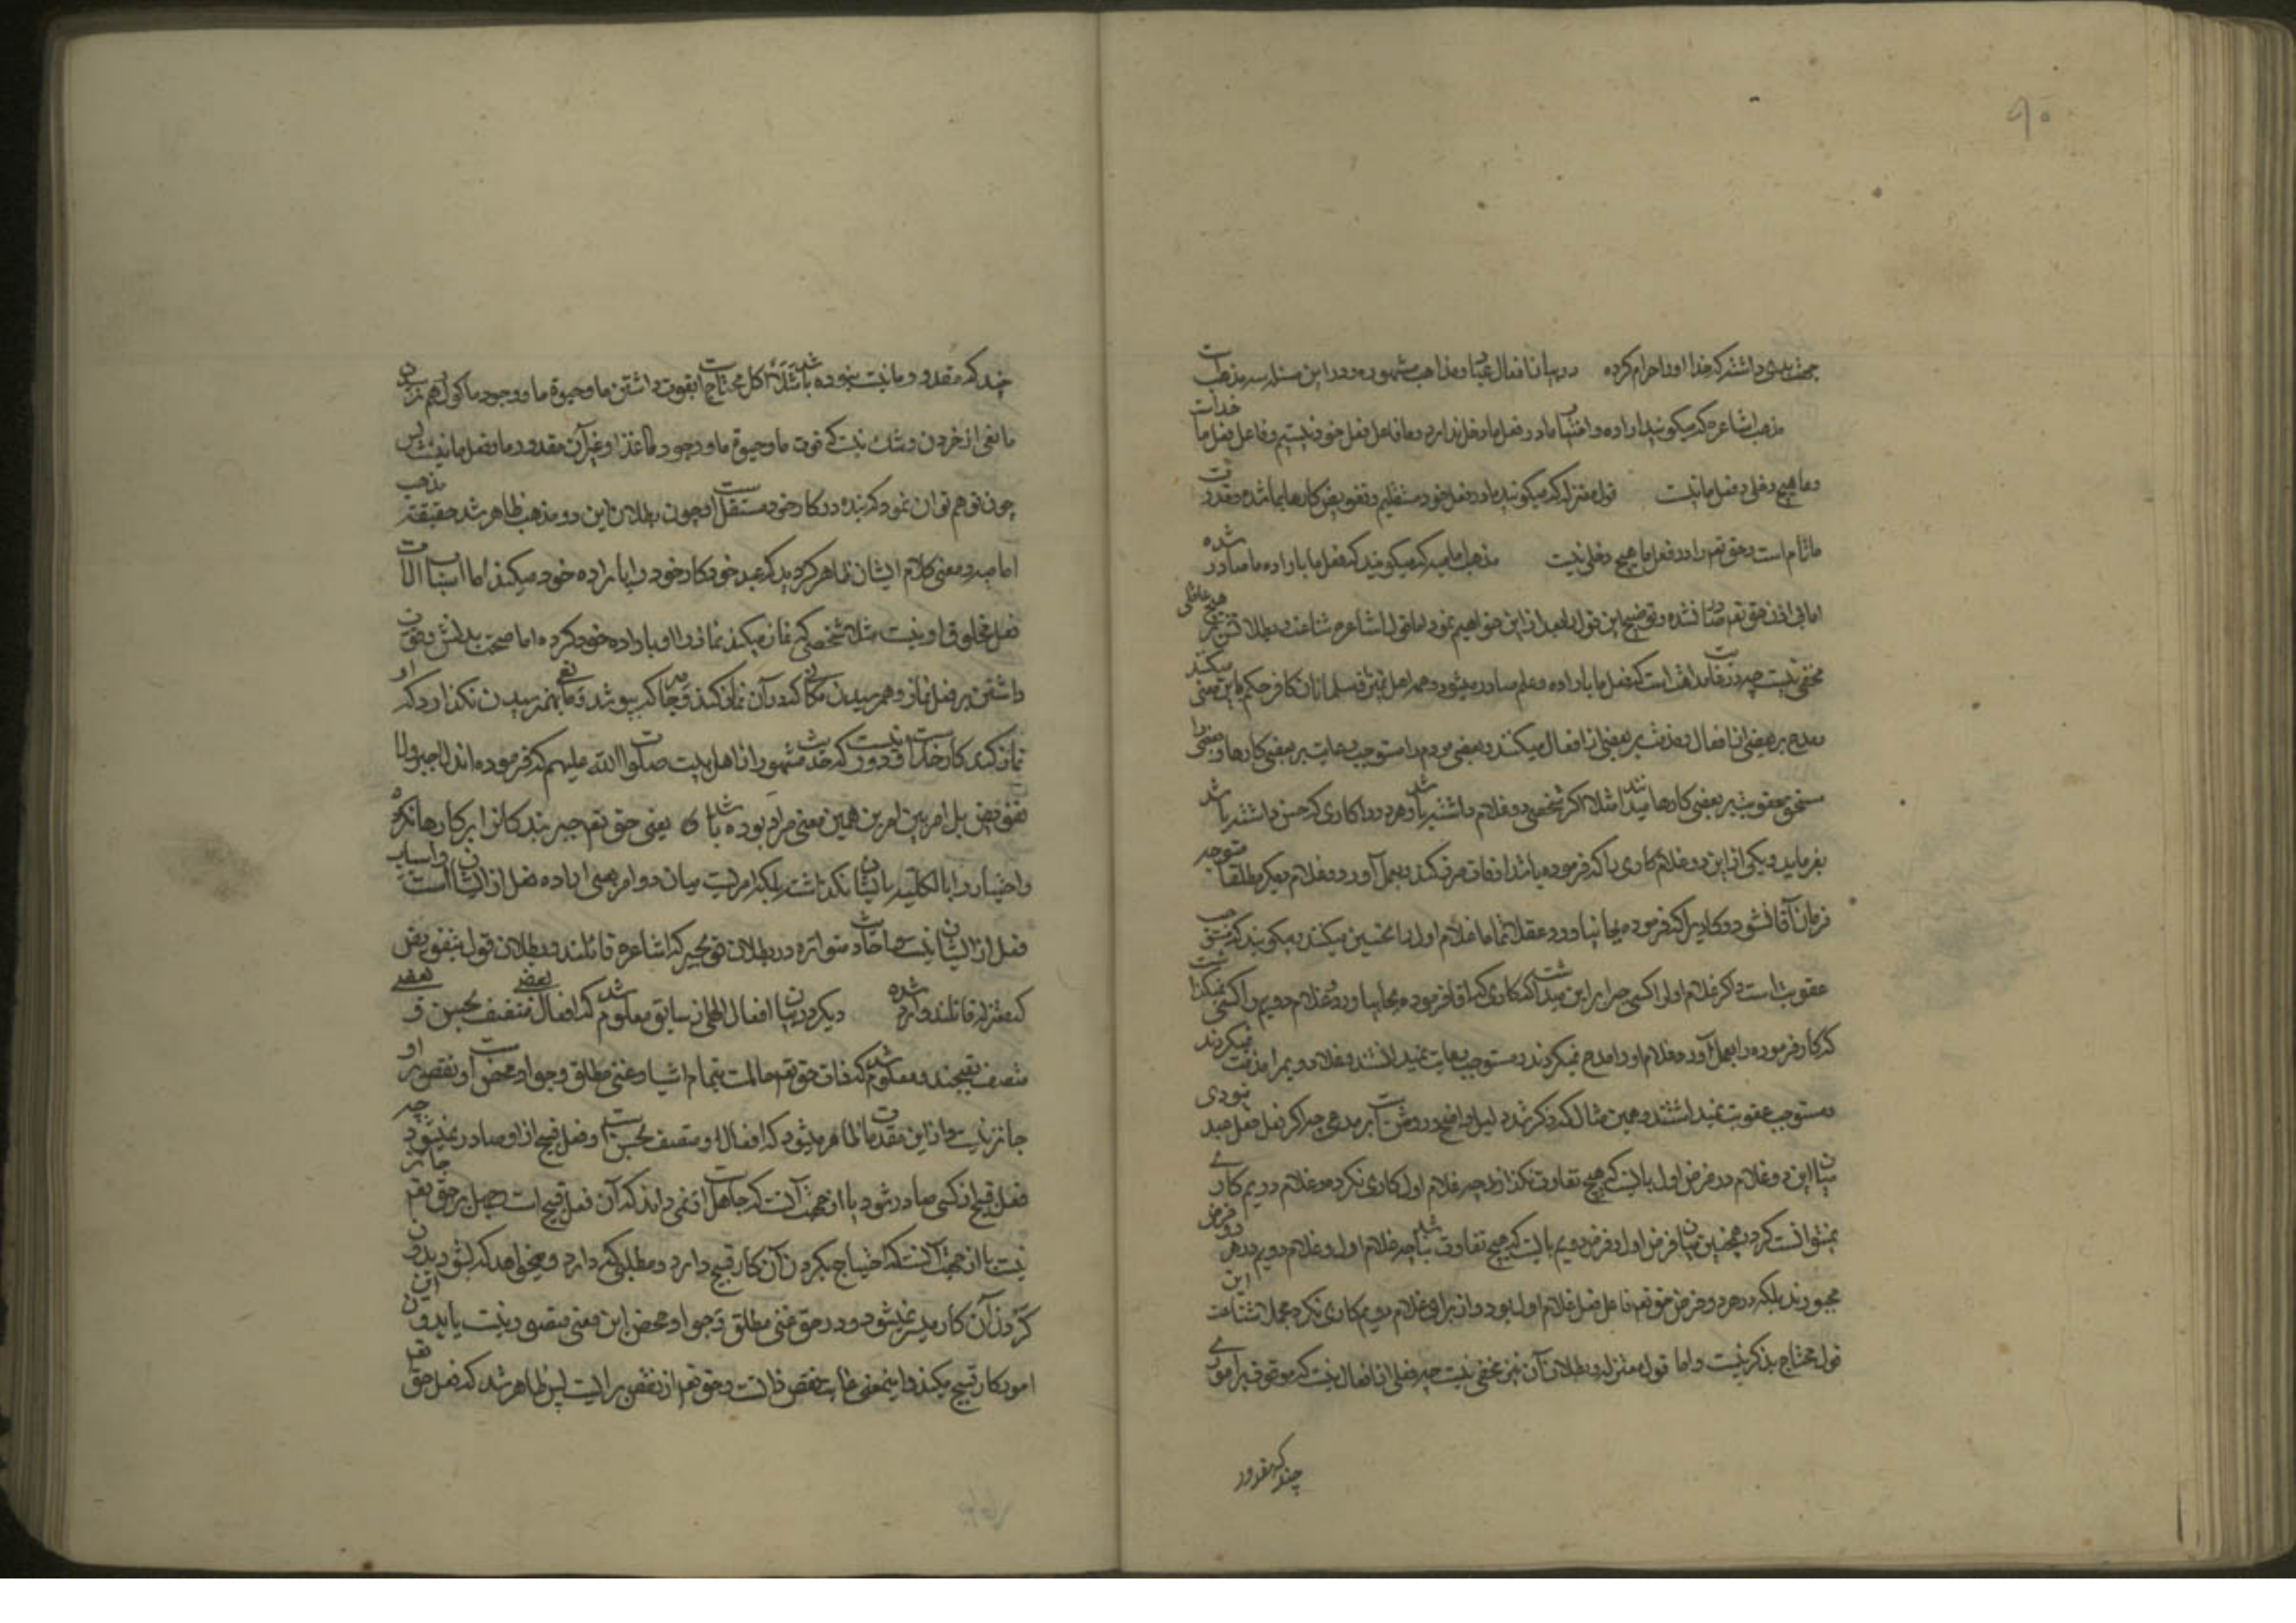 ۹۰
جهت بدی داشتند که خدا او را حرام کرده در بیان افعال عباد و مذاهب مشهوره و در این مسئله سه مذهب است
مذهب اشاعره که میگویند اراده و اختیار ما در فعل ما دخل ندارد و ما فاعل فعل خود نیستیم و فاعل فعل ما خداست
و ما هیچ دخلی در فعل ما نیست قول معتزله که میگویند ما در فعل خود مستقلیم و تفویض کارها بما شده و قدرت
ما تام است و حق تعم را در فعل ما هیچ دخلی نیست مذهب امامیه که میگویند که فعل ما باراده ما صادر شده
اما بی اذن حق تعم صادر نشده و توضیح این قول را بعد از این خواهیم نمود اما قول اشاعره شناعت و بطلانش بر هیچ عاقلی
مخفی نیست چه در نهایت است که فعل ما باراده و علم صادر میشود و همه اهل تمیز مسلمانان کافر حکم باین معنی میکند
و مدح بر بعضی از افعال و مذمت بر بعضی از افعال میکنند و بعضی مردم را مستوجب رعایت بر بعضی کارها و بعضی را
مستحق عقوبت بر بعضی کارها میدانند مثلا اگر شخصی دو غلام داشته باشد و هر دو را کاری که حسن داشته باشد
بفرماید و یکی از این دو غلام کاری را که فرموده باشد اوقات صرف کند و بعمل آورد و غلام دیگر مطلقا متوجه
فرمان آقا نشود و کاریرا که فرموده بجا نیاورد عقلا تمام غلام اول را تحسین میکنند و میگویند که مستوجب
عقوبت است و اگر غلام اول را کسی جبرا بر این میداشت که کاری که آقا فرموده بجا بیاورد و غلام دویم را کسی نمیگذاشت
که کار فرموده را بعمل آورد غلام اول را مدح نمیکردند و مستوجب رعایت نمیدانستند و غلام دویم را مذمت نمیکردند
و مستوجب عقوبت نمیدانستند و همین مثال که ذکر شد دلیل واضح و روشن است بر مدعی چه اگر فعل فعل عبد نبودی
میان این دو غلام در فرض اول بایست که هیچ تفاوت نکند زیرا چه غلام اول کاری نکرده و غلام دویم کاری
نمیتوانست کرد و همچنین میان فرض اول و فرض دویم بایست که هیچ تفاوت نباشد چه غلام اول و غلام دویم در هر دو فرض
مجبورند بلکه در هر دو فرض حق تعم فاعل فعل غلام اول بود و از برای غلام دویم کاری نکرد مجملا شناعت این
قول محتاج بذکر نیست و اما قول معتزله و بطلان آن نیز مخفی نیست چه فعلی از افعال نیست که موقوف بر اموری
چند که مقدور
چند که مقدور ما نیست نبوده باشد مثلا اکل محتاج است بقوت داشتن ما و حیوة ما و وجود ماکول و هم نرسیدن
مانعی از خوردن و شک نیست که قوت ما و حیوة ما و وجود ما غذا و غیر آن مقدور ما و فعل ما نیست پس
چون توهم توان نمود که بنده در کار خود مستقل است و چون بطلان این دو مذهب ظاهر شد حقیقت مذهب
امامیه و معنی کلام ایشان ظاهر گردید که عبد خود کار خود را باراده خود میکند اما اسباب و آلات
فعل مخلوق او نیست مثلا شخصی که نماز میکند نماز را او باراده خود کرده اما صحت بدنش و قوت
داشتن بر فعل نماز و بهم رسیدن مکانی که در آن نماز کند و جامه که بپوشد و مانعی بهم نرسیدن نگذارد که او
نماز کند کار خداست و دور نیست که حدیث مشهور از اهل بیت صلوات الله علیهم که فرموده اند لا جبر ولا
تفویض بل امر بین امرین همین معنی مراد بوده باشد یعنی حق تعم جبر بندگانرا بر کارها نکرده
و اختیار را بالکلیه بایشان نگذاشته بلکه امریست میان دو امر یعنی اراده فعل از ایشان است و اسباب
فعل از ایشان نیست و احادیث متواتره در بطلان قول بجبر که اشاعره قائلند و بطلان قول بتفویض
که معتزله قائلند وارد شده دیگر در بیان افعال الهی از سابق معلوم شد که افعال بعضی متصف بحسن و بعضی
متصف بقبحند و معلوم شد که ذات حق تعم عالمست بتمام اشیاء و غنی مطلق و جواد محض است و نقص بر او
جایز نیست و از این مقدمات ظاهر میشود که افعال او متصف بحسن است و فعل قبیح از او صادر نمیشود چه
فعل قبیح از کسی صادر شود یا از جهت آنست که جاهل است و نمی داند که آن فعل قبیح است و جهل بر حق تعم جایز
نیست یا از جهت آنست که احتیاج بکردن آن کار قبیح دارد و مطلبی که دارد و میخواهد که بشود بدون
کردن آن کار میسر نمیشود و در حق غنی مطلق و جواد محض این معنی متصور نیست یا بدون این
امور کار قبیح میکند و اینمعنی غایت نقص ذاتست و حق تعم از نقص براست پس ظاهر شد که فعل حق تعم